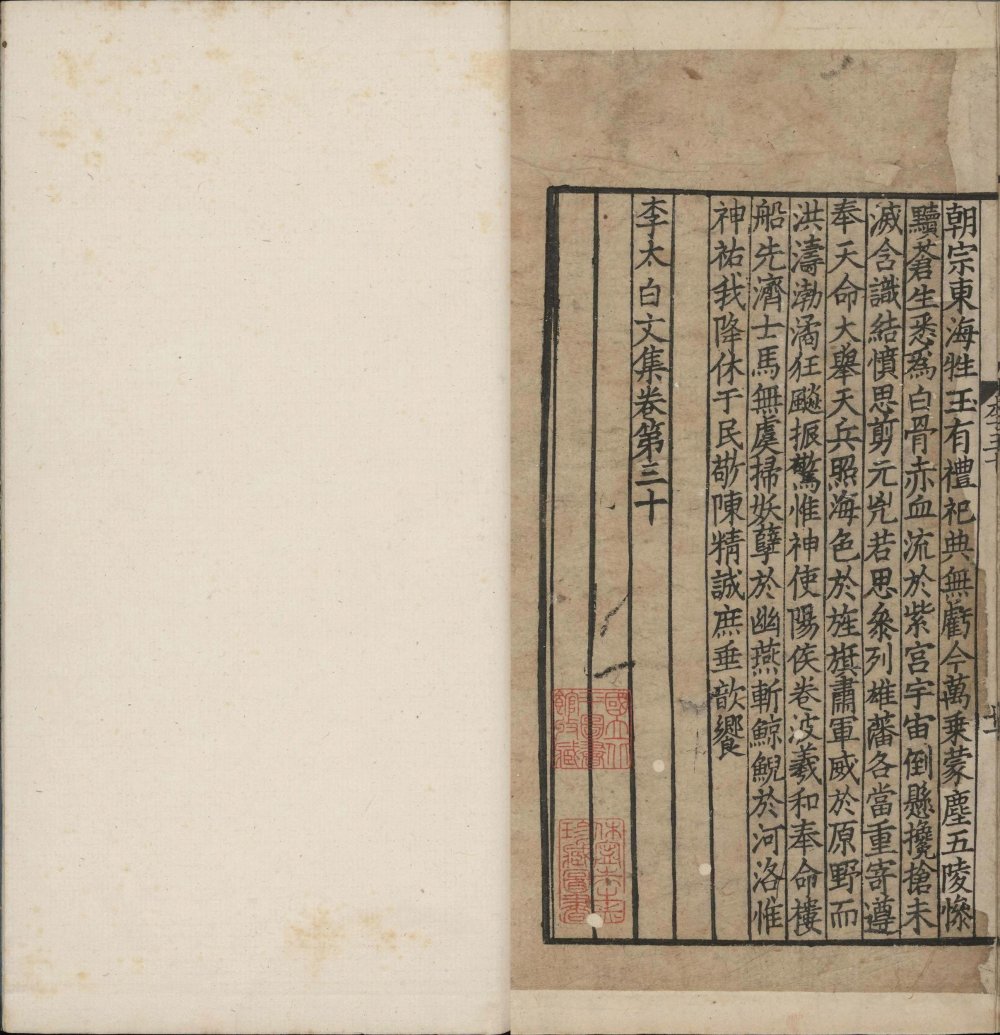 朝宗東海牲玉有禮祀典無虧今萬乗蒙塵五陵慘
黷蒼生悉爲白骨赤血流於紫宮宇宙倒懸攙搶未
滅含識結憤思剪元兇若思叅列雄藩各當重寄遵
奉天命大舉天兵照海色於旌旗肅軍威於原野而
洪濤渤潏狂飈振驚惟神使陽侯卷波羲和奉命樓
船先濟士馬無虞掃妖孽於幽燕斬鯨鯢於河洛惟
神祐我降休于民敬陳精誠庶垂歆饗
李太白文集卷第三十
國立北
平圖書
館收藏
珍藏圖書